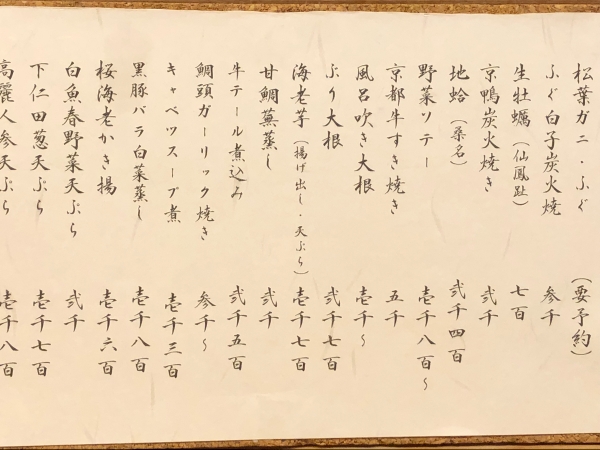 松葉ガニ・ふぐ (要予約)
ふぐ白子炭火焼 参千
生牡蠣(仙鳳趾) 七百
京鴨炭火焼き 弐千
地蛤(桑名) 弐千四百
野菜ソテー 壱千八百~
京都牛すき焼き 五千
風呂吹き大根 壱千~
ぶり大根 弐千七百
海老芋(揚げ出し・天ぷら) 壱千七百
甘鯛蕪蒸し 弐千
牛テール煮込み 弐千五百
鯛頭ガーリック焼き 参千~
キャベツスープ煮 壱千三百
黒豚バラ白菜蒸し 壱千八百
桜海老かき揚 壱千六百
白魚春野菜天ぷら 弐千
下仁田葱天ぷら 壱千七百
高麗人参天ぷら 壱千八百